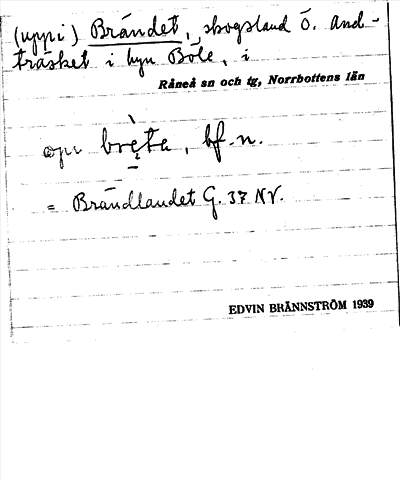 (uppi) Brändet, skogsland ö. And-
träsket i byn Böle, i
Råneå sn och tg, Norrbottens län
bre̱ta, bf. n.
= Brändlandet G. 37 NV.
EDVIN BRÄNNSTRÖM 1939